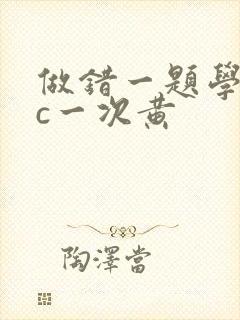 做錯一題學
c一次黄
陶澤當